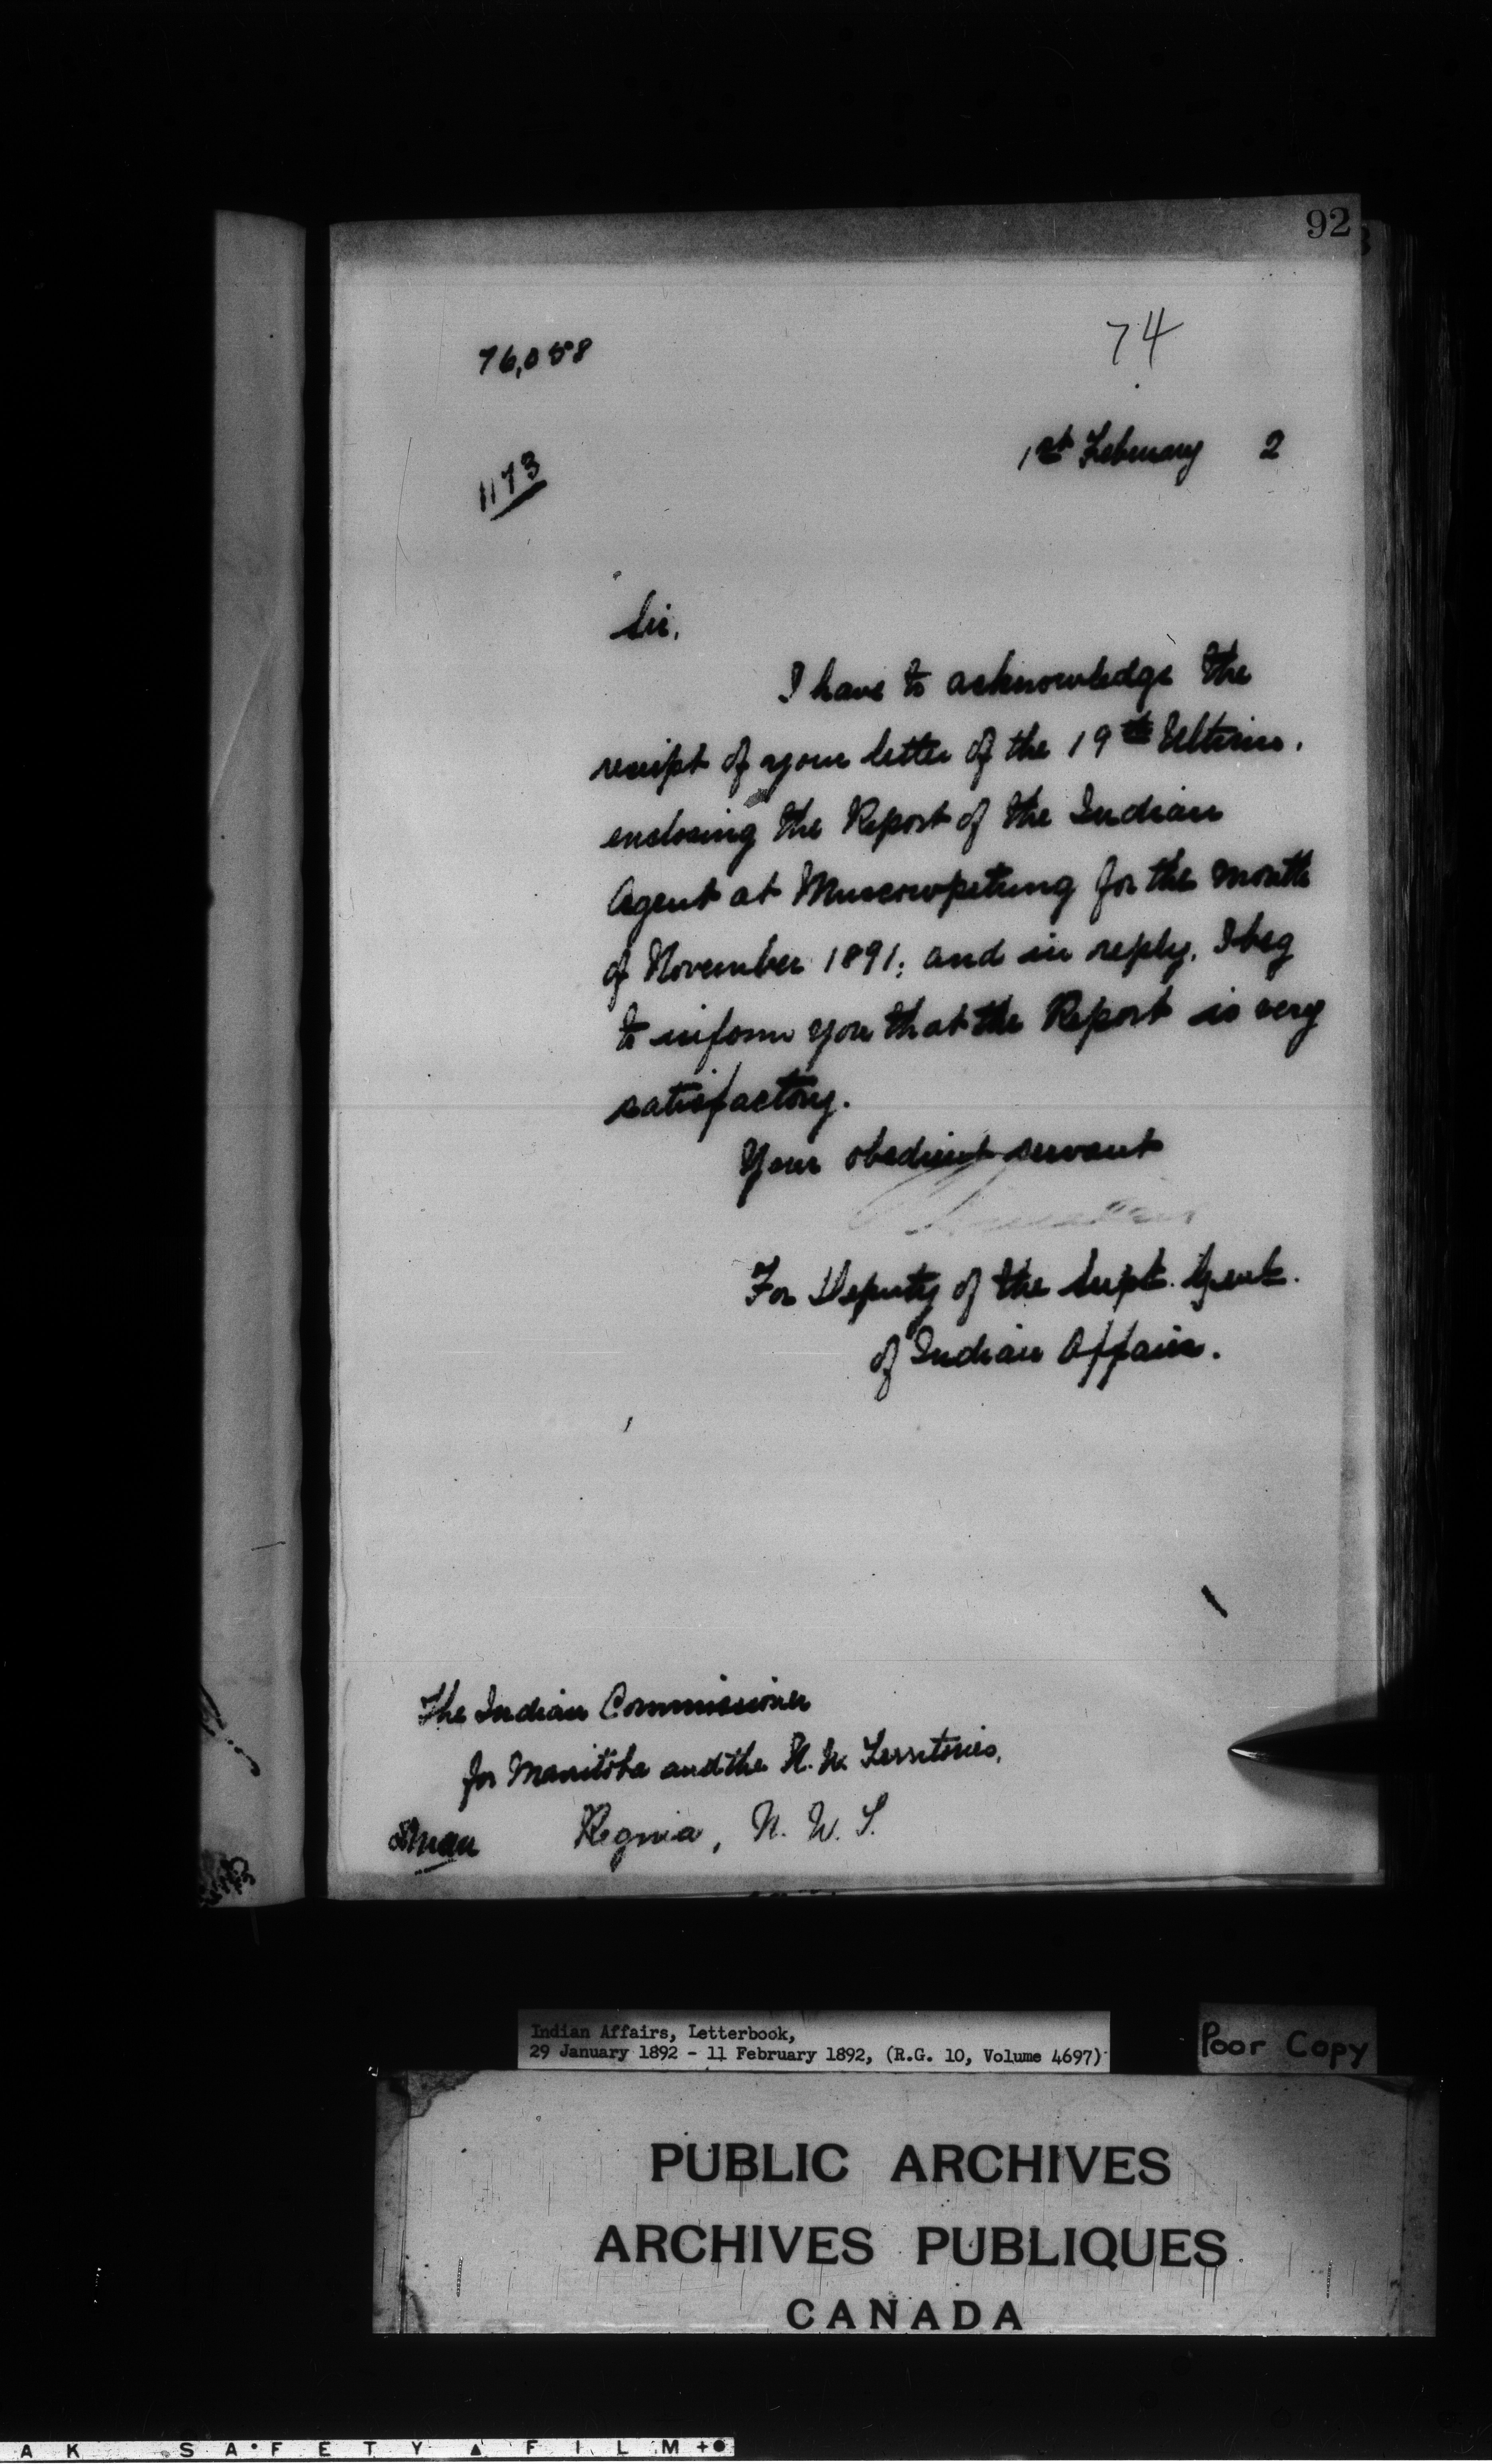 92
74
76,058
1st February 2
1173
Sir,
I have to acknowledge the
receipt of your letter of the 19th Ultimo.
enclosing the Report of the Indian
Agent at Muscowpetung for the month
of November 1891; and in reply, I beg
to inform you that the Report is very
satisfactory.
Your obedient servant
For Deputy of the Supt. Genl.
of Indian Affairs.
The Indian Commissioner
for Manitoba and the N. W. Territories,
Regina, N. W. T.
Indian Affairs, Letterbook,
29 January 1892 - 11 February 1892, (R.G. 10, Volume 4697)
Poor Copy
PUBLIC ARCHIVES
ARCHIVES PUBLIQUES
CANADA
AK SAFETY FILM